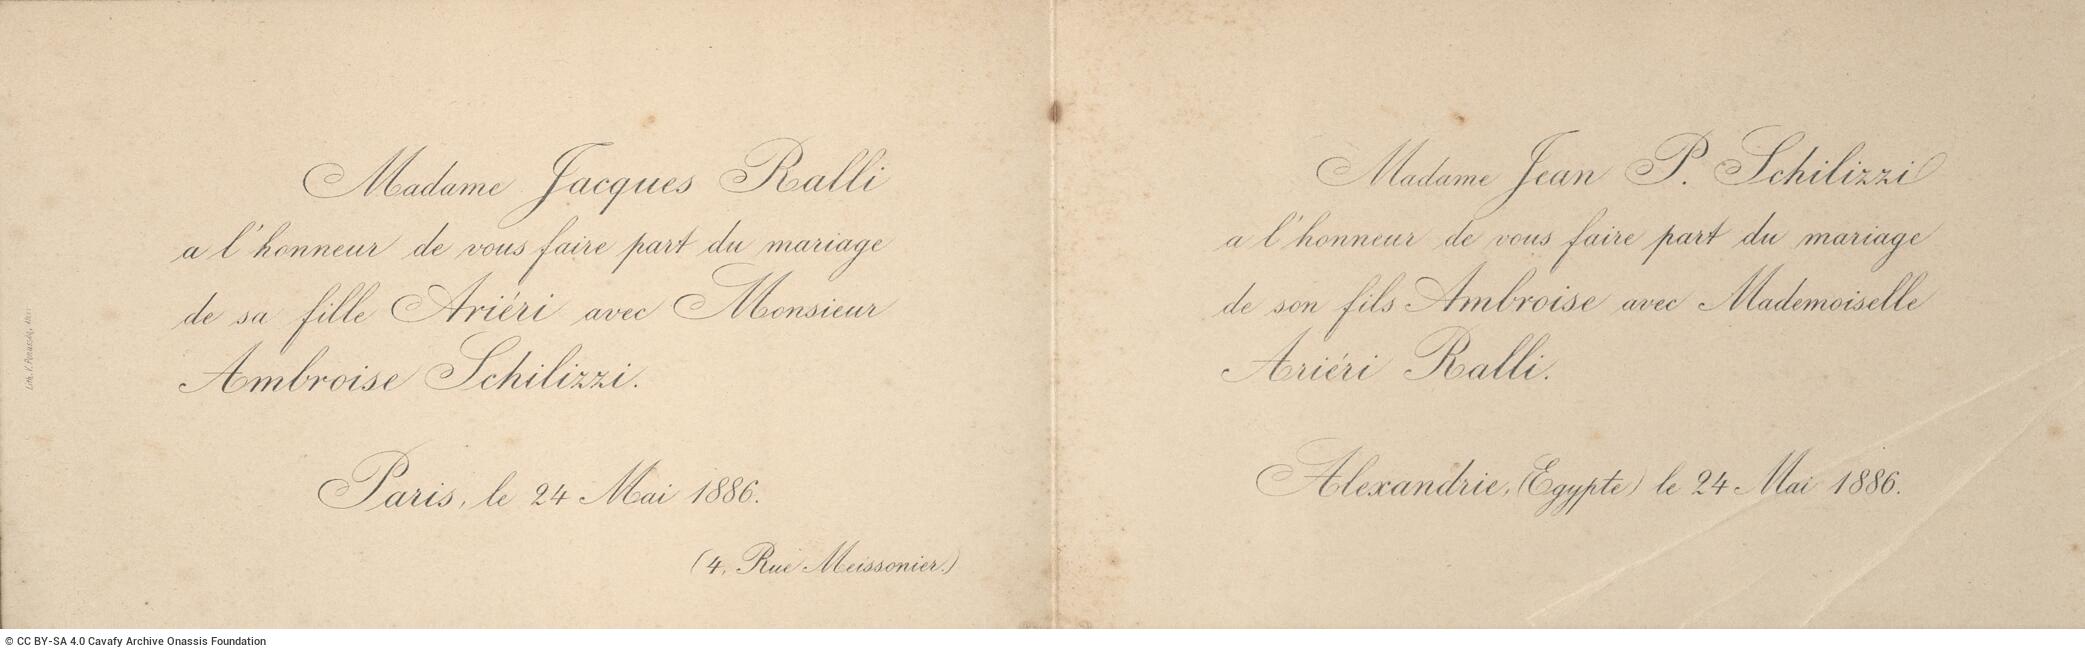 Madame Jacques Ralli
a l'honneur de vous faire part du mariage
de sa fille Ariéri avec Monsieur
Ambroise Schilizzi.
Paris, le 24 Mai 1886.
(4, Rue Meissonier.)
Madame Jean P. Schilizzi
a l'honneur de vous faire part du mariage
de son fils Ambroise avec Mademoiselle
Ariéri Ralli.
Alexandrie, (Egypte) le 24 Mai 1886.
Lith.
© CC BY-SA 4.0 Cavafy Archive Onassis Foundation